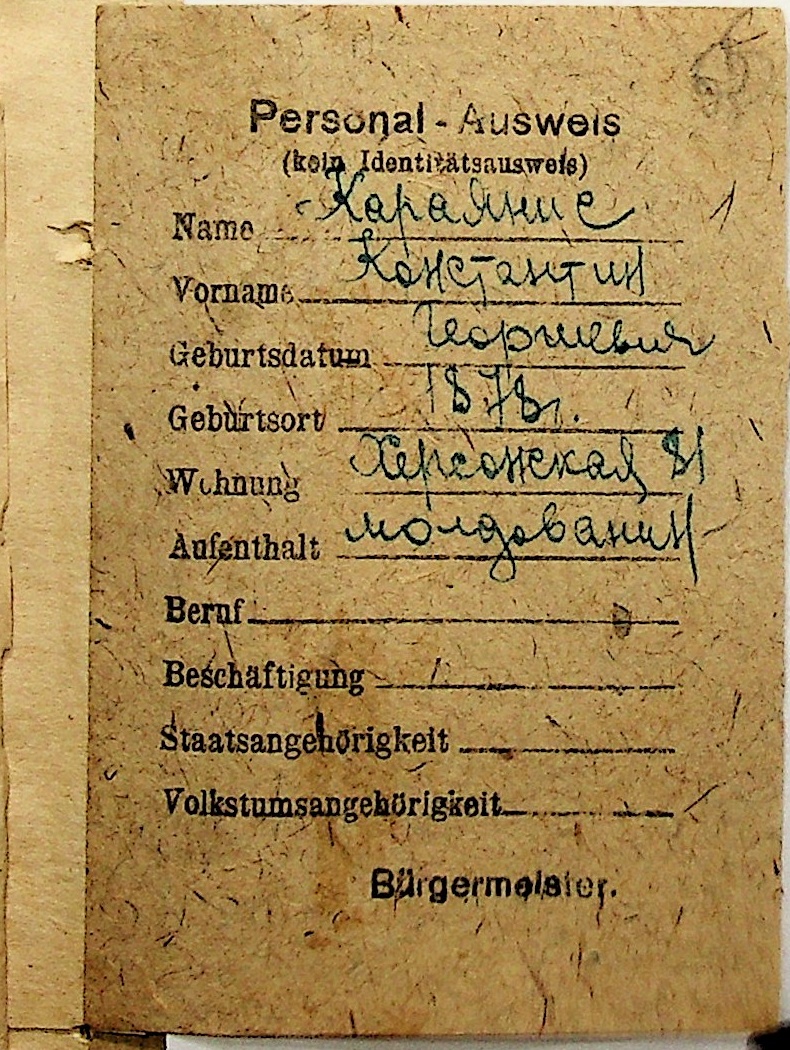 Personal-Ausweis
(kein Identitätsausweis)
Name Караянис
Vorname Константин
Geburtsdatum Георгиевич
Geburtsort 1878г.
Wohnung Херсонская 81
Aufenthalt молдованин
Beruf
Beschäftigung
Staatsangehörigkeit
Volkstumsangehörigkeit
Bürgermeister.